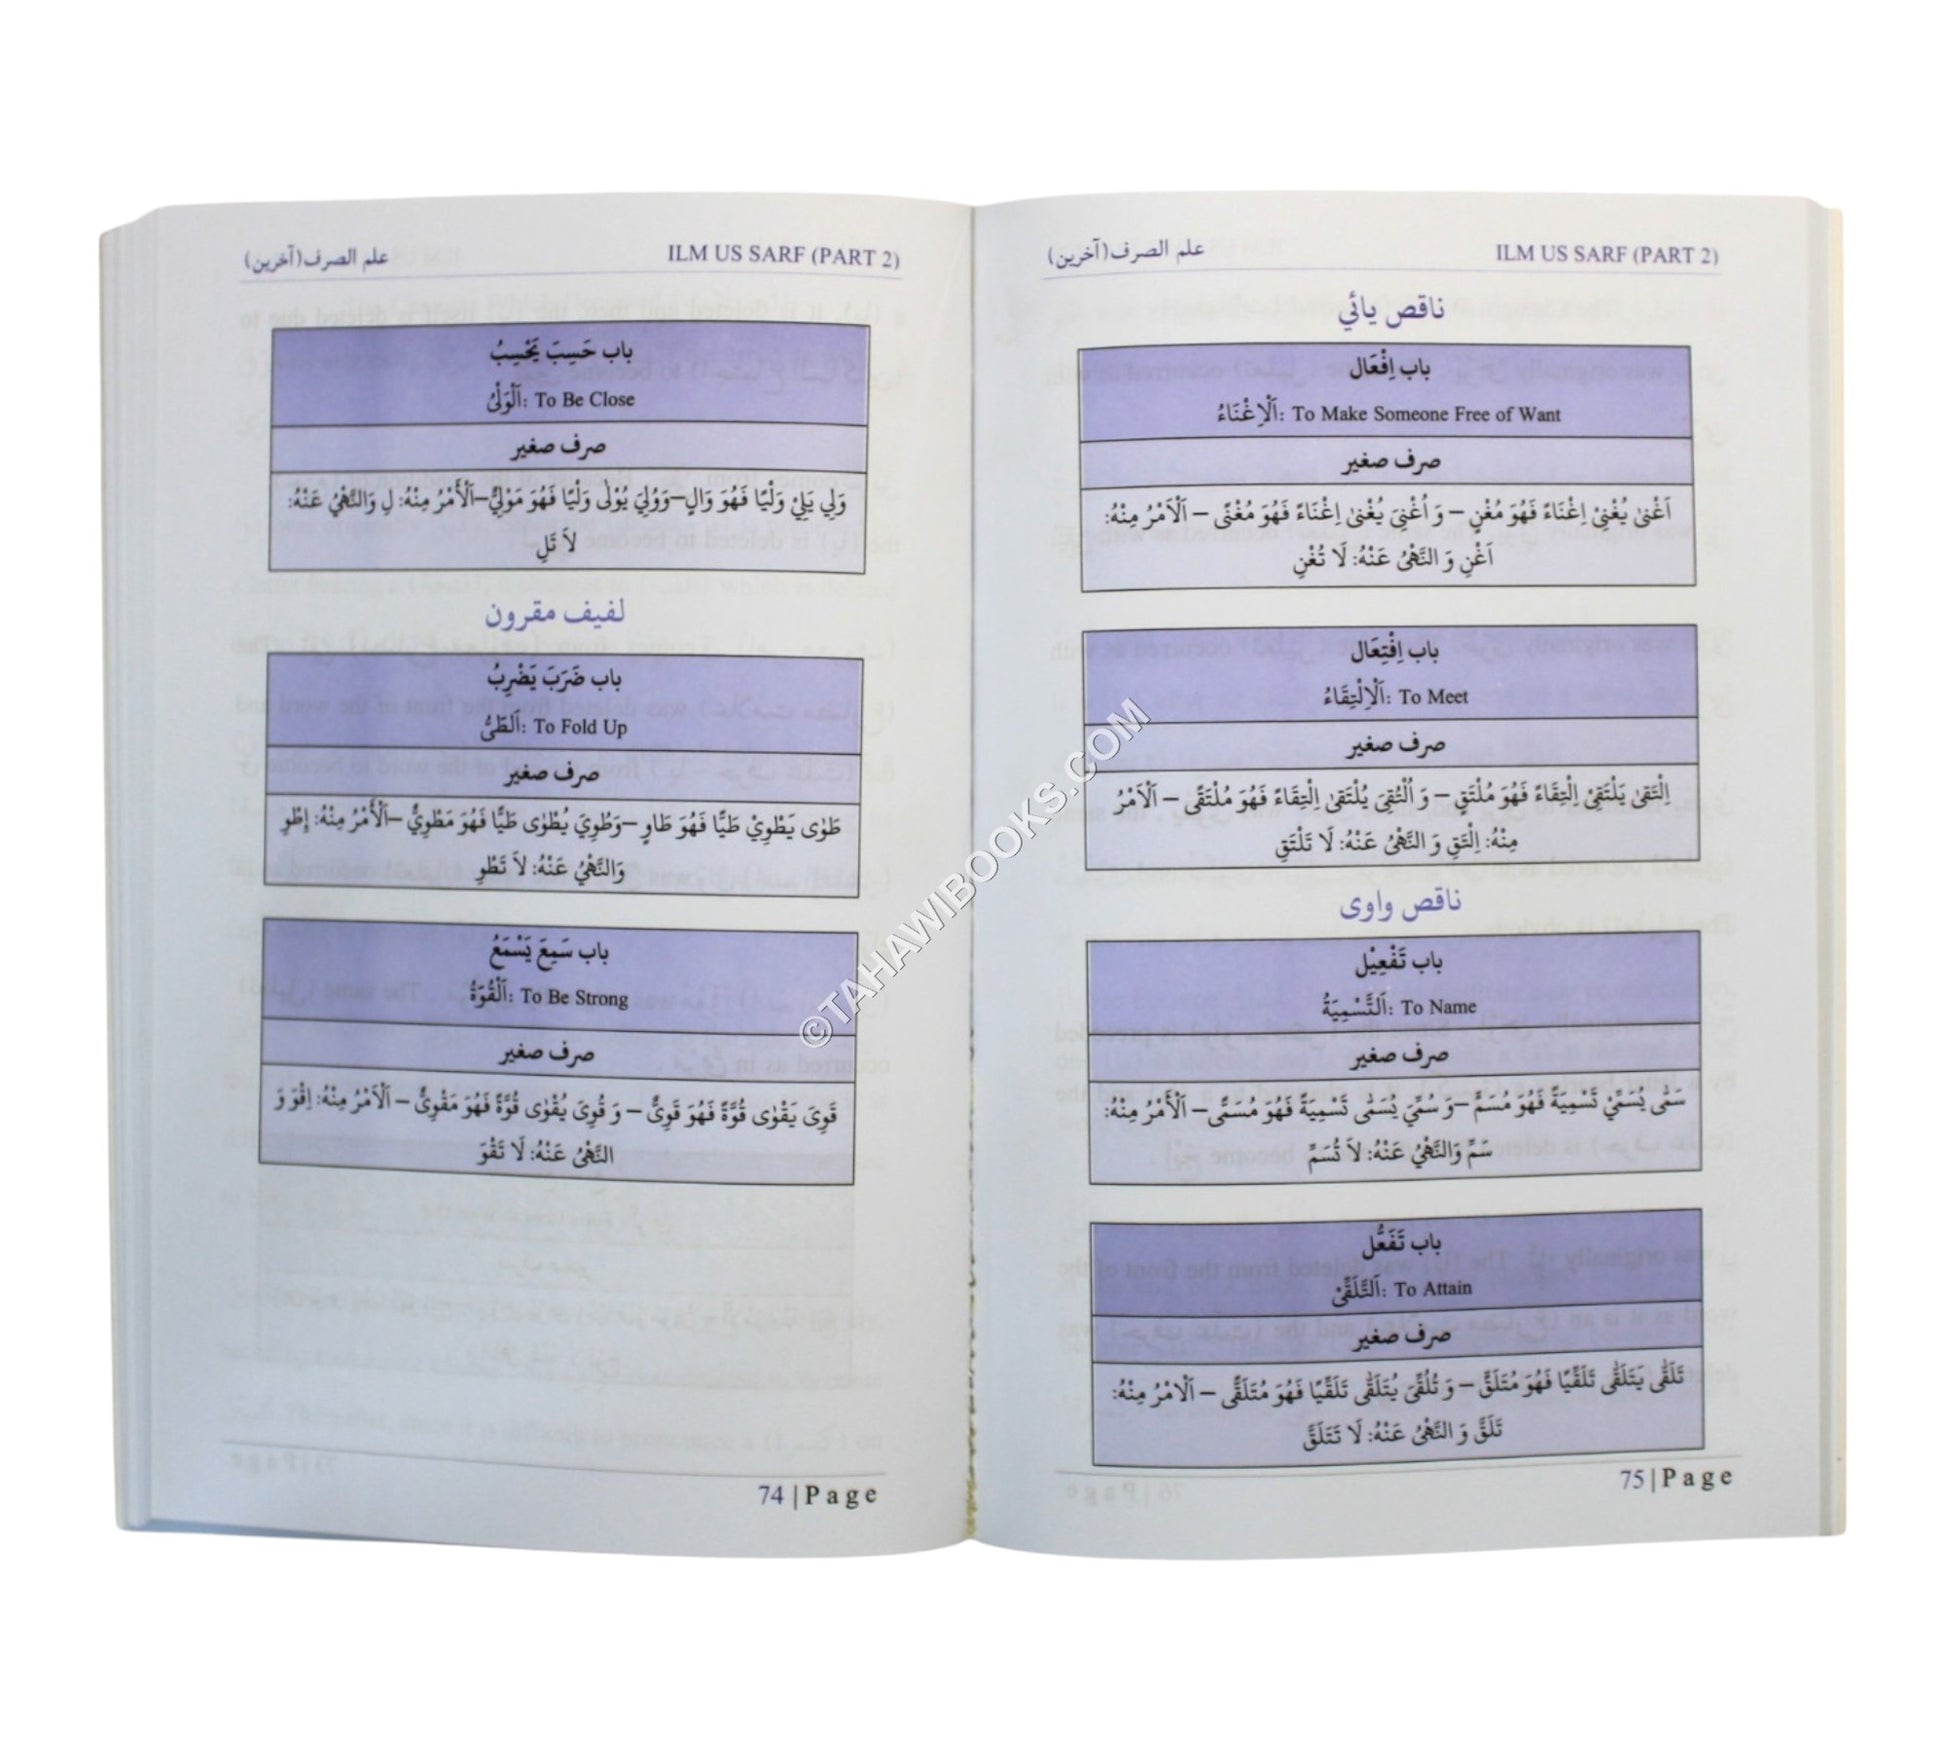 علم الصرف(آخرين) ILM US SARF (PART 2)
باب حَسِبَ يَحْسِبُ
اَلْوَلْىُ: To Be Close
صرف صغير
وَلِي يَلِيْ وَلْيًا فَهُوَ وَالٍ–وَوُلِيَ يُوْلَى وَلْيًا فَهُوَ مَوْلِيٌّ–اَلْأَمْرُ مِنْهُ: لِ وَالنَّهْيُ عَنْهُ:
لاَ تَلِ
لفيف مقرون
باب ضَرَبَ يَضْرِبُ
اَلطَّىُّ: To Fold Up
صرف صغير
طَوٰى يَطْوِيْ طَيًّا فَهُوَ طَاوٍ –وَطُوِيَ يُطْوٰى طَيًّا فَهُوَ مَطْوِيٌّ –اَلْأَمْرُ مِنْهُ: إِطْوِ
وَالنَّهْيُ عَنْهُ: لاَ تَطْوِ
باب سَمِعَ يَسْمَعُ
اَلْقُوَّةُ: To Be Strong
صرف صغير
قَوِىَ يَقْوٰى قُوَّةً فَهُوَ قَوِىٌّ – وَ قُوِىَ يُقْوٰى قُوَّةً فَهُوَ مَقْوِىٌّ – اَلْاَمْرُ مِنْهُ: اِقْوَ وَ
النَّهْىُ عَنْهُ: لَا تَقْوَ
74 | Page
علم الصرف(آخرين) ILM US SARF (PART 2)
ناقص يائي
باب اِفْعَال
اَلْاِغْنَاءُ: To Make Someone Free of Want
صرف صغير
اَغْنىٰ يُغْنِىْ اِغْنَاءً فَهُوَ مُغْنٍ – وَ اُغْنِىَ يُغْنىٰ اِغْنَاءً فَهُوَ مُغْنًى – اَلْاَمْرُ مِنْهُ:
اَغْنِ وَ النَّهْىُ عَنْهُ: لَا تُغْنِ
باب اِفْتِعَال
اَلْاِلْتِقَاءُ: To Meet
صرف صغير
اِلْتَقىٰ يَلْتَقِىْ اِلْتِقَاءً فَهُوَ مُلْتَقٍ – وَ اُلْتُقِىَ يُلْتَقىٰ اِلْتِقَاءً فَهُوَ مُلْتَقًى – اَلْاَمْرُ
مِنْهُ: اِلْتَقِ وَ النَّهْىُ عَنْهُ: لَا تَلْتَقِ
ناقص واوى
باب تَفْعِيْل
اَلتَّسْمِيَةُ: To Name
صرف صغير
سَمّٰى يُسَمِّيْ تَسْمِيَةً فَهُوَ مُسَمٍّ –وَ سُمِّيَ يُسَمّٰى تَسْمِيَةً فَهُوَ مُسَمًّى– اَلْأَمْرُ مِنْهُ:
سَمِّ وَالنَّهْيُ عَنْهُ: لاَ تُسَمِّ
باب تَفَعُّل
اَلتَّلَقِّىْ: To Attain
صرف صغير
تَلَقّٰى يَتَلَقّٰى تَلَقِّيًا فَهُوَ مُتَلَقٍّ – وَ تُلُقِّىَ يُتَلَقّٰى تَلَقِّيًا فَهُوَ مُتَلَقًّى – اَلْاَمْرُ مِنْهُ:
تَلَقَّ وَ النَّهْىُ عَنْهُ: لَا تَتَلَقَّ
75 | Page
©TAHAWIBOOKS.COM